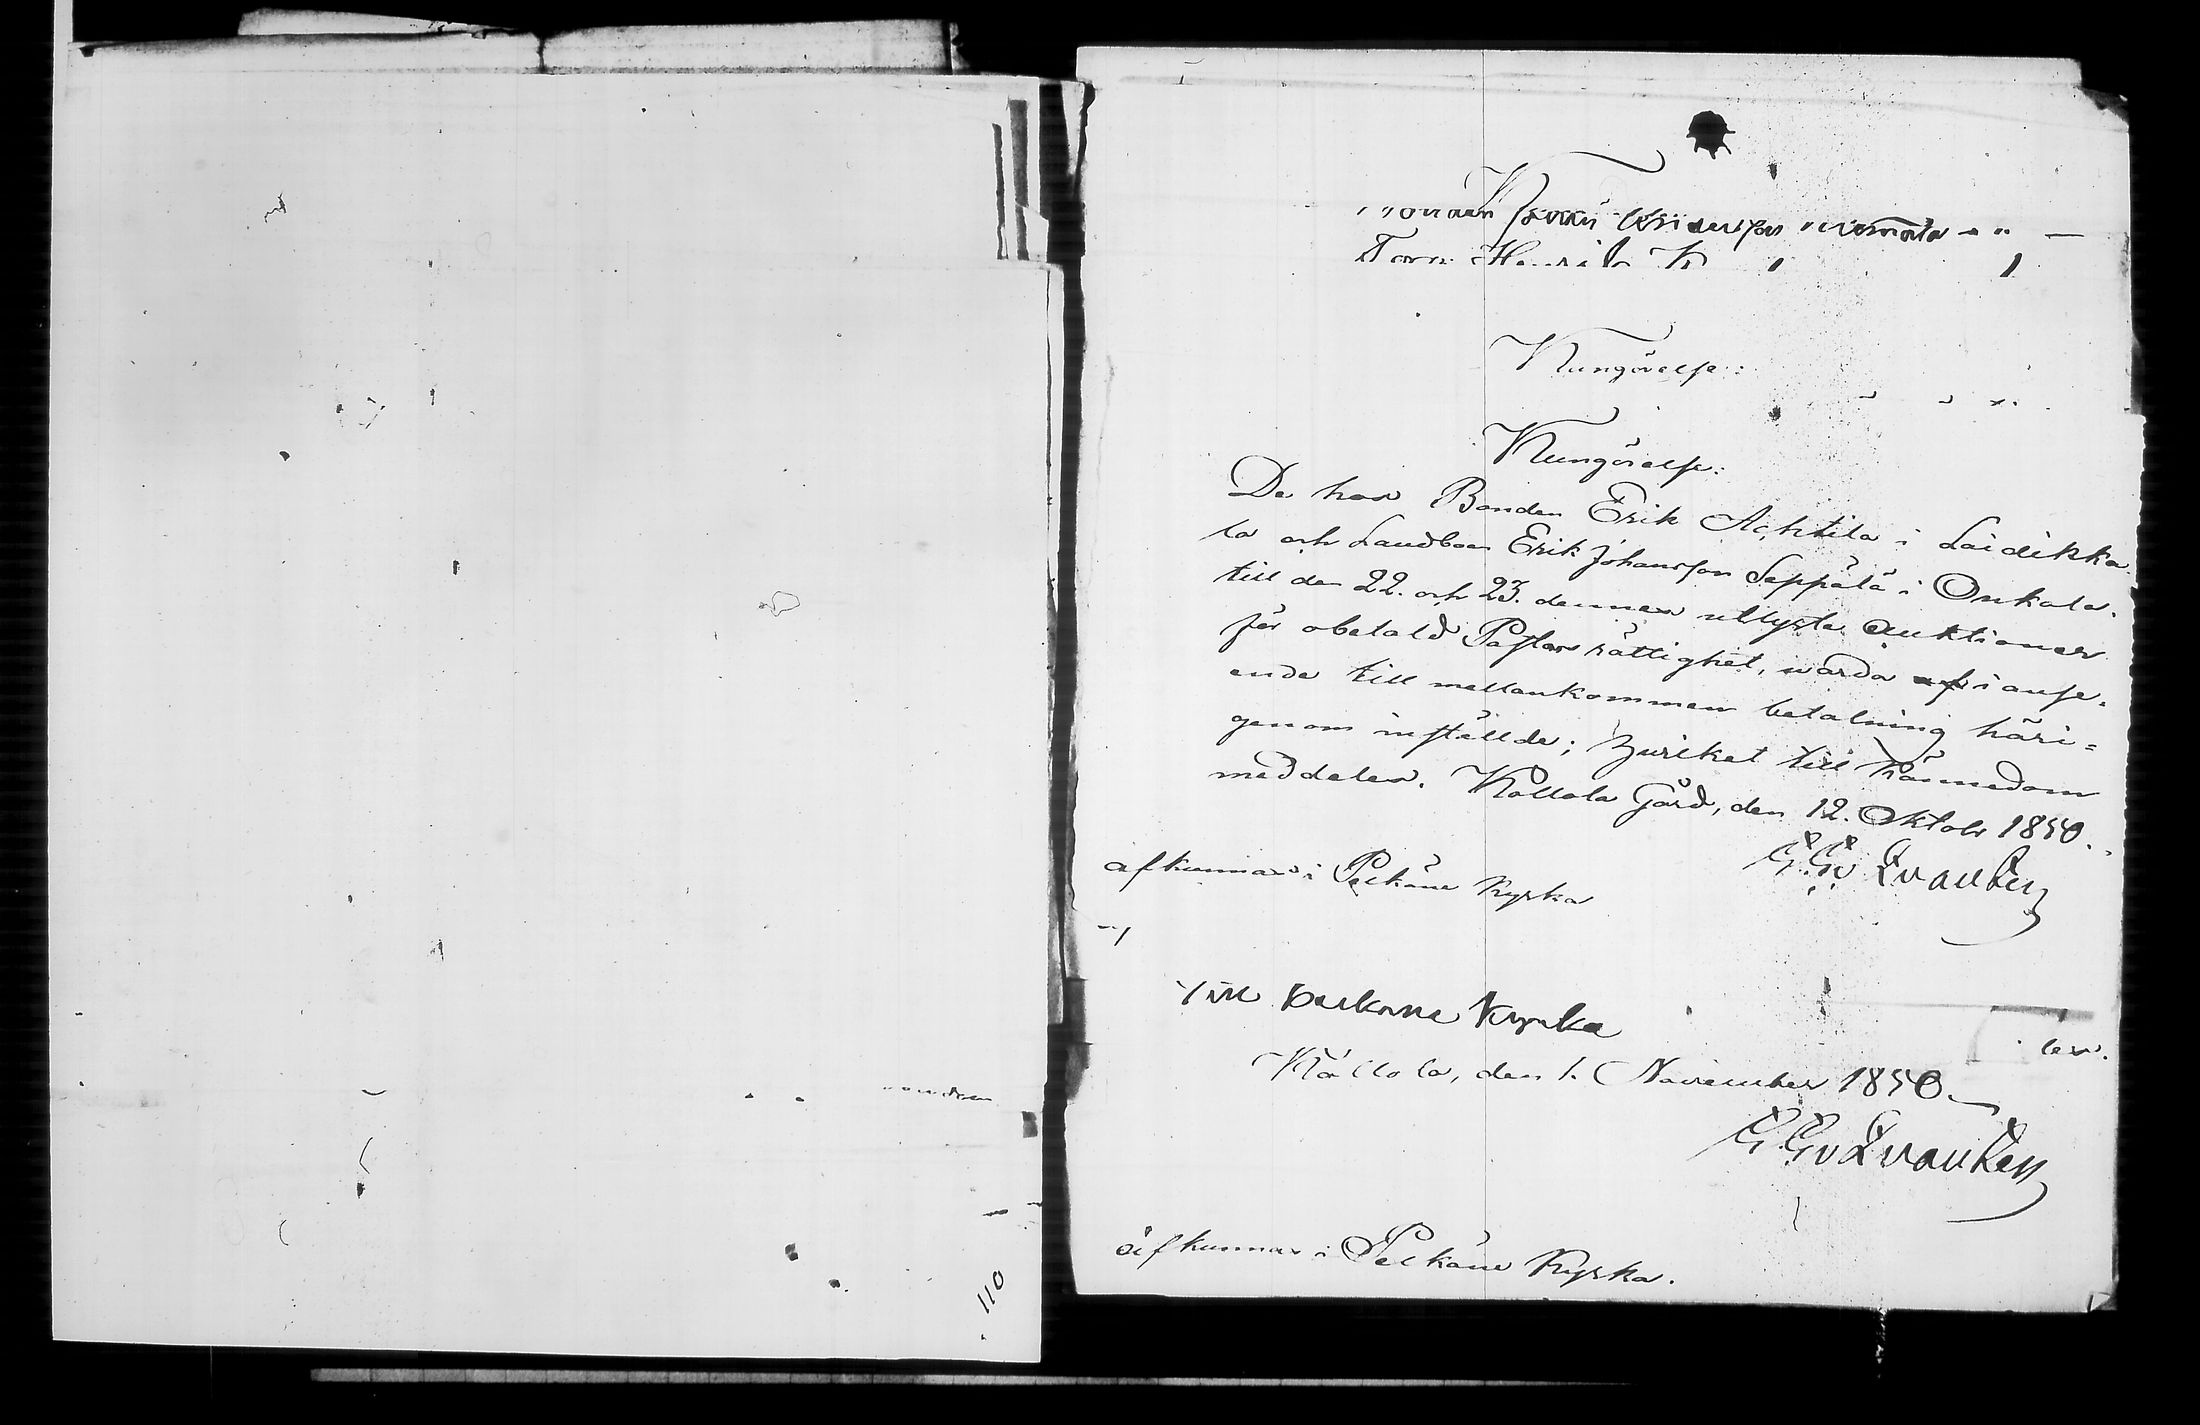 Torp. Henrik
Kungörelse:
Kungörelse:
De hos Bonden Erik Achtila i Laidikka-
la och Landboen Erik Johansson Seppälä i Onkala.
till den 22. och 23. dennes utlyste Auktioner
för obetald Pastors rättighet, warda i anse-
ende till mellankommen betalning häri-
genom inställde; hwilket till kännedom
meddelas. Kollola Gård, den 12. Oktobr 1850.
G. G. v Qvanten
afkunnas i Pelkäne Kyrka
Till Pelkäne Kyrka
Kollola, den 1. November 1850
G. G. v Qvanten
afkunnas i Pelkäne Kyrka.
110